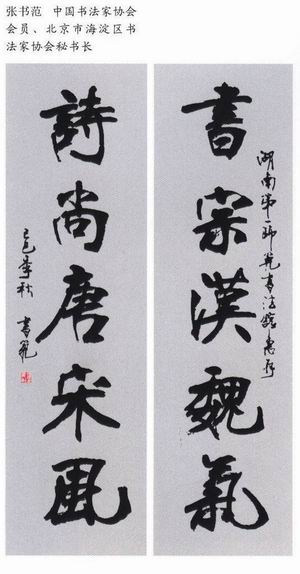 张书范　中国书法家协会
会员、北京市海淀区书
法家协会秘书长
書宗漢魏氣
湖南第一師範書法館惠存
詩尚唐宋風
己巳季秋 書範